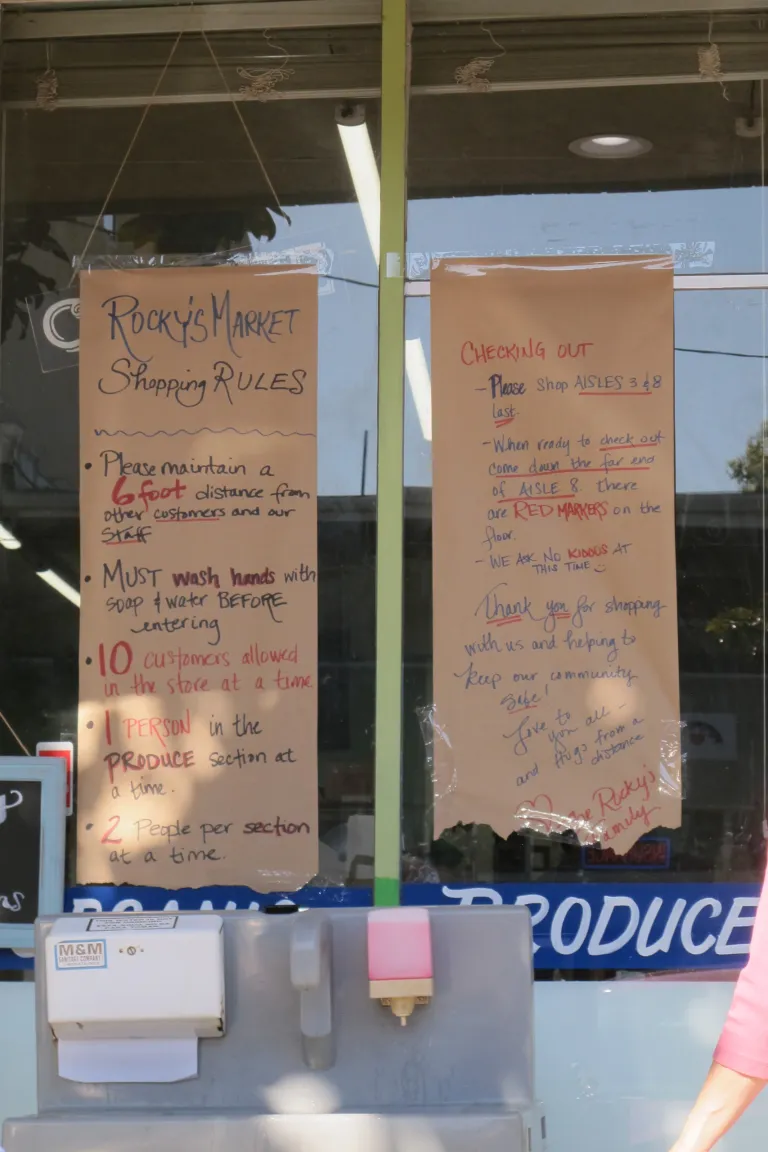 ROCKY'S MARKET
Shopping RULES
• Please maintain a
6 foot distance from
other customers and our
staff
• MUST wash hands with
soap & water BEFORE
entering
• 10 customers allowed
in the store at a time.
• 1 PERSON in the
PRODUCE section at
a time.
• 2 People per section
at a time.
CHECKING OUT
- Please shop AISLES 3 & 8
last.
- When ready to check out
come down the far end
of AISLE 8. There
are RED MARKERS on the
floor.
- WE ASK NO KIDDOS AT
THIS TIME
Thank you for shopping
with us and helping to
keep our community
safe!
Love to
you all -
and Hugs from a
distance
The Rocky's
Family
PRODUCE
M&M